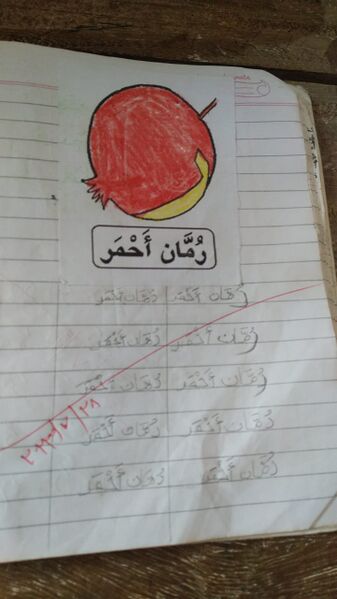 رُمَّان أَحْمَر
رُمَّان أَحْمَر رُمَّان أَحْمَر
رُمَّان أَحْمَر رُمَّان أَحْمَر
رُمَّان أَحْمَر رُمَّان أَحْمَر
رُمَّان أَحْمَر رُمَّان أَحْمَر
رُمَّان أَحْمَر رُمَّان أَحْمَر